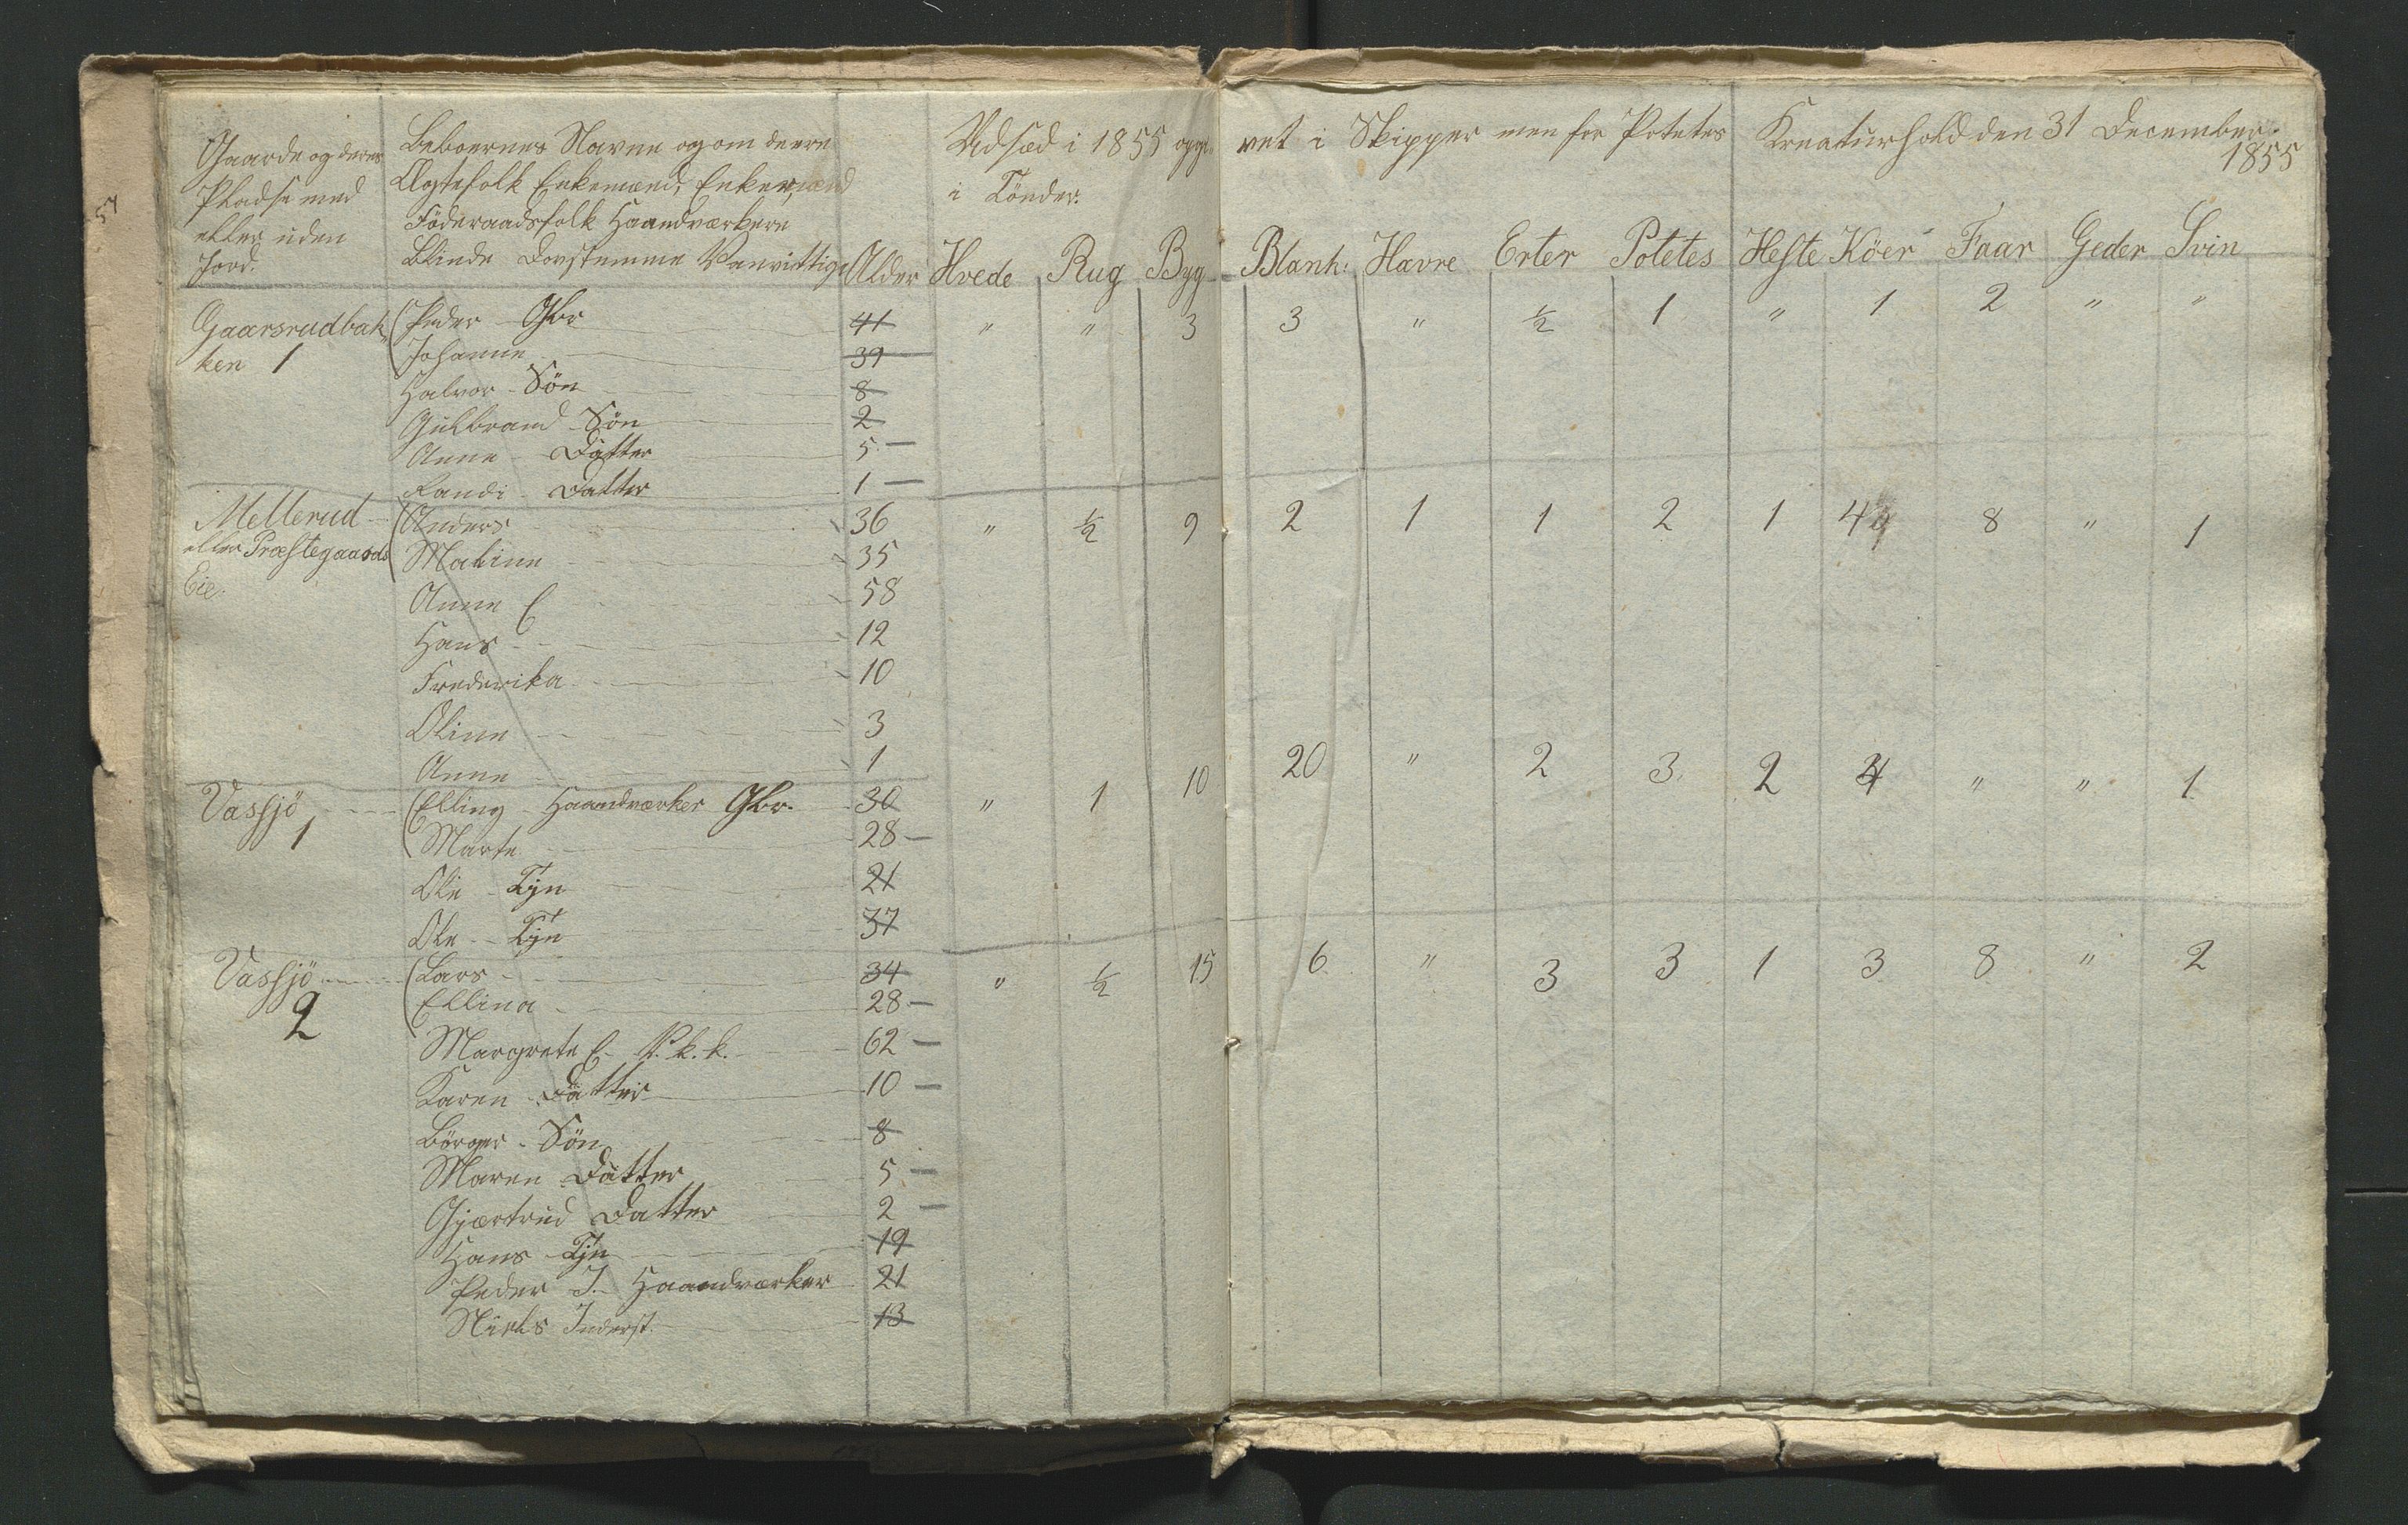 Gaarde og deres
Pladse med
eller uden
Jord.
Beboernes Navne og om de ere
Ægtefolk Enkemænd, Enker,
Föderaadsfolk Haandværkere
Blinde Dovstumme Vanvittige
Alder
Udsæd i 1855 opgi vet i Skipper men for Potetes
i Tönder.
Kreaturhold den 31 December
1855
Hvede Rug Byg Blank: Havre Erter Potetes Heste Köer Faar Geder Svin
Gaarsrudbak (Peder Gbr 41 " " 3 3 " ½ 1 " 1 2 " "
ken 1 (Johanne 39
Halvor - Sön 8
Gulbrand Sön 2
Anne - Datter 5 —
Randi - Datter 1 —
Mellerud (Anders 36 " ½ 9 2 1 1 2 1 4 8 " 1
eller Præstegaards (Maline 35
Eie. Anne E 58
Hans 12
Frederika 10
Oline 3
Anne 1
Vassjö (Elling - Haandværker Gbr. 30 " 1 10 20 " 2 3 2 4 " " 1
1 (Marte 28 —
Ole - Tjn 21
Ole - Tjn 37
Vassjö (Lars 34 " ½ 15 6 " 3 3 1 3 8 " 2
2 (Ellina 28 —
Margrete E. V.k.k. 62 —
Karen Datter 10 —
Börger - Sön 8
Maren Datter 5 —
Gjærtrud Datter 2 —
Hans - Tjn 19
Peder I. Haandværker 21
Niels Inderst. 13